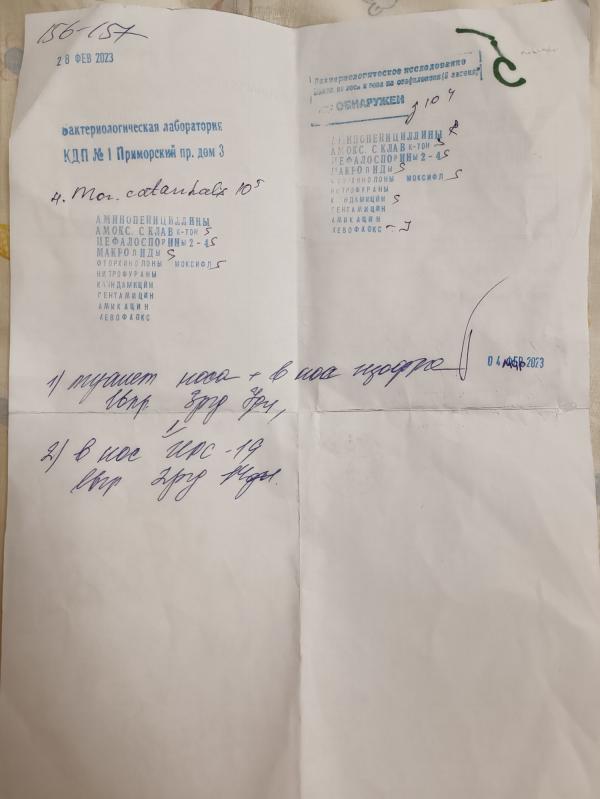 156-157
28 ФЕВ 2023
Бактериологическая лаборатория
КДП № 1 Приморский пр. дом 3
4. Mor. catarrhalis 10⁵
АМИНОПЕНИЦИЛЛИНЫ
АМОКС. С КЛАВ К-ТОЙ S
ЦЕФАЛОСПОРИНЫ 2-4 S
МАКРОЛИДЫ S
ФТОРХИНОЛОНЫ МОКСИФЛ S
НИТРОФУРАНЫ
КЛИНДАМИЦИН
ГЕНТАМИЦИН
АМИКАЦИН
ЛЕВОФЛОКС
Бактериологическое исследование
на стафилококк
ОБНАРУЖЕН
10 4
АМИНОПЕНИЦИЛЛИНЫ R
АМОКС. С КЛАВ К-ТОЙ S
ЦЕФАЛОСПОРИНЫ 2-4 S
МАКРОЛИДЫ S
ФТОРХИНОЛОНЫ МОКСИФЛ S
НИТРОФУРАНЫ
КЛИНДАМИЦИН S
ГЕНТАМИЦИН
АМИКАЦИН
ЛЕВОФЛОКС - J
04 мар 2023
1) туалет носа + в нос изофра
1впр 3рд 7дн,
2) в нос ИРС-19
1впр 2рд 14дн.